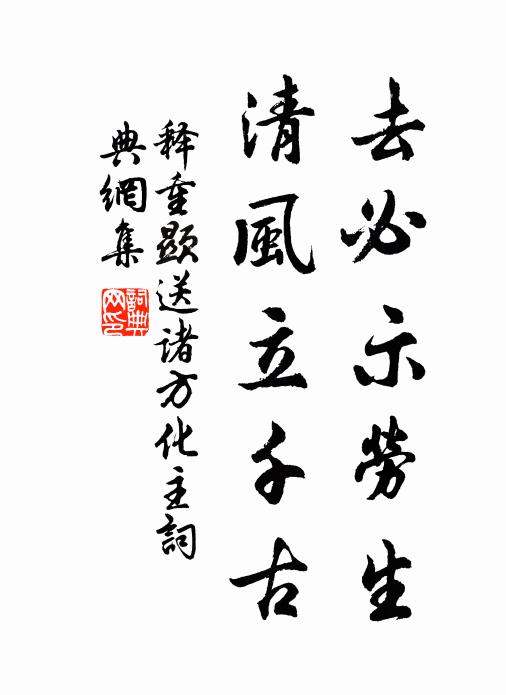 去必示勞生
清風立千古
释重顯送诸方化主詞
典網集
詞典
网印